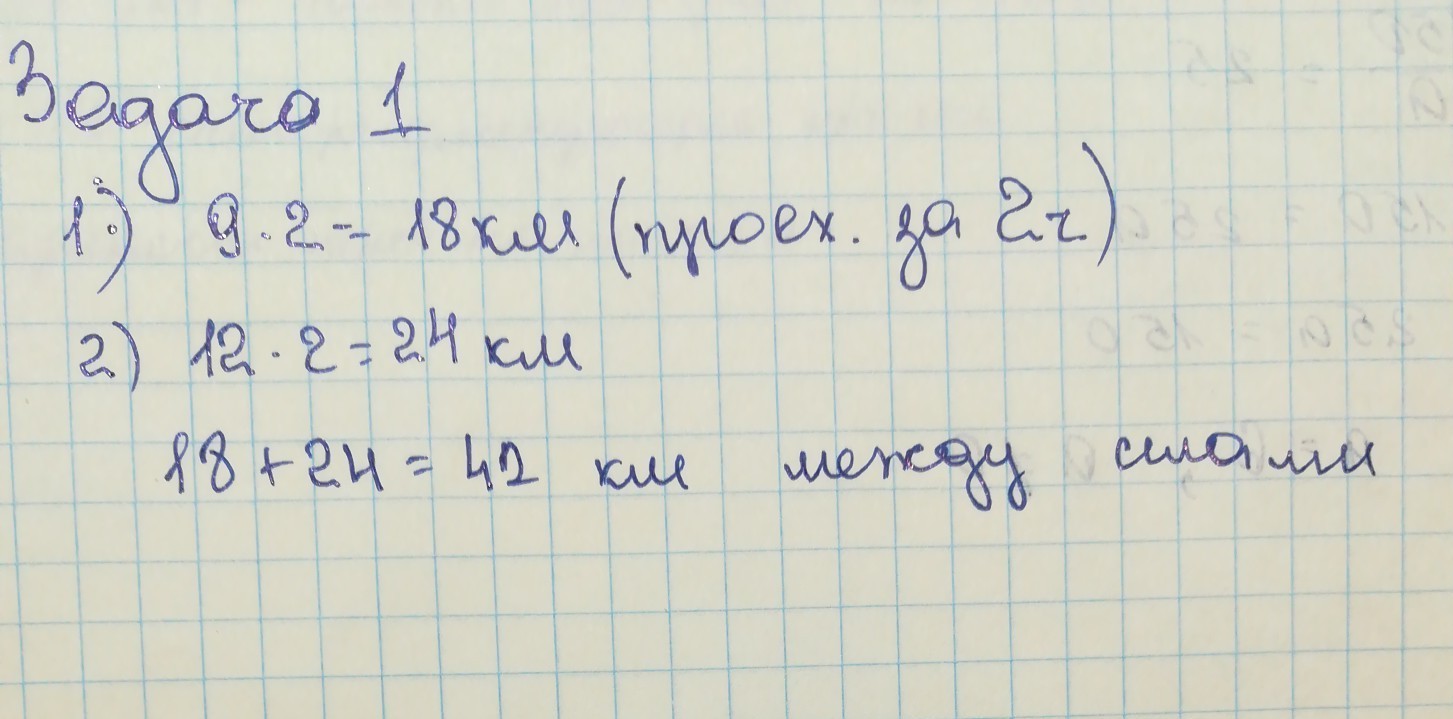 Задача 1
1.) 9 · 2 = 18 км (проех. за 2ч)
2) 12 · 2 = 24 км
18 + 24 = 42 км между